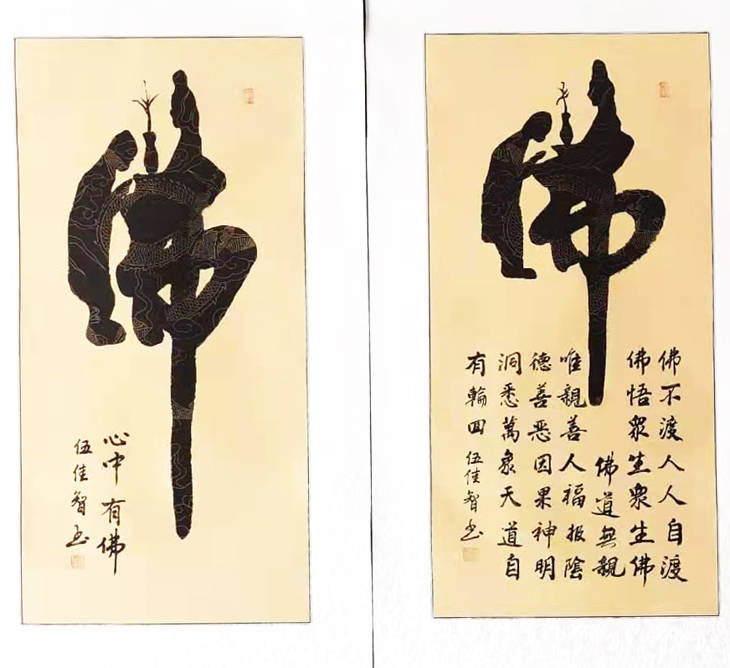 佛
心中有佛
伍佳智书
佛
佛不渡人人自渡
佛悟眾生眾生佛
佛道無親
唯親善人福报陰
德善恶因果神明
洞悉萬象天道自
有輪回
伍佳智书